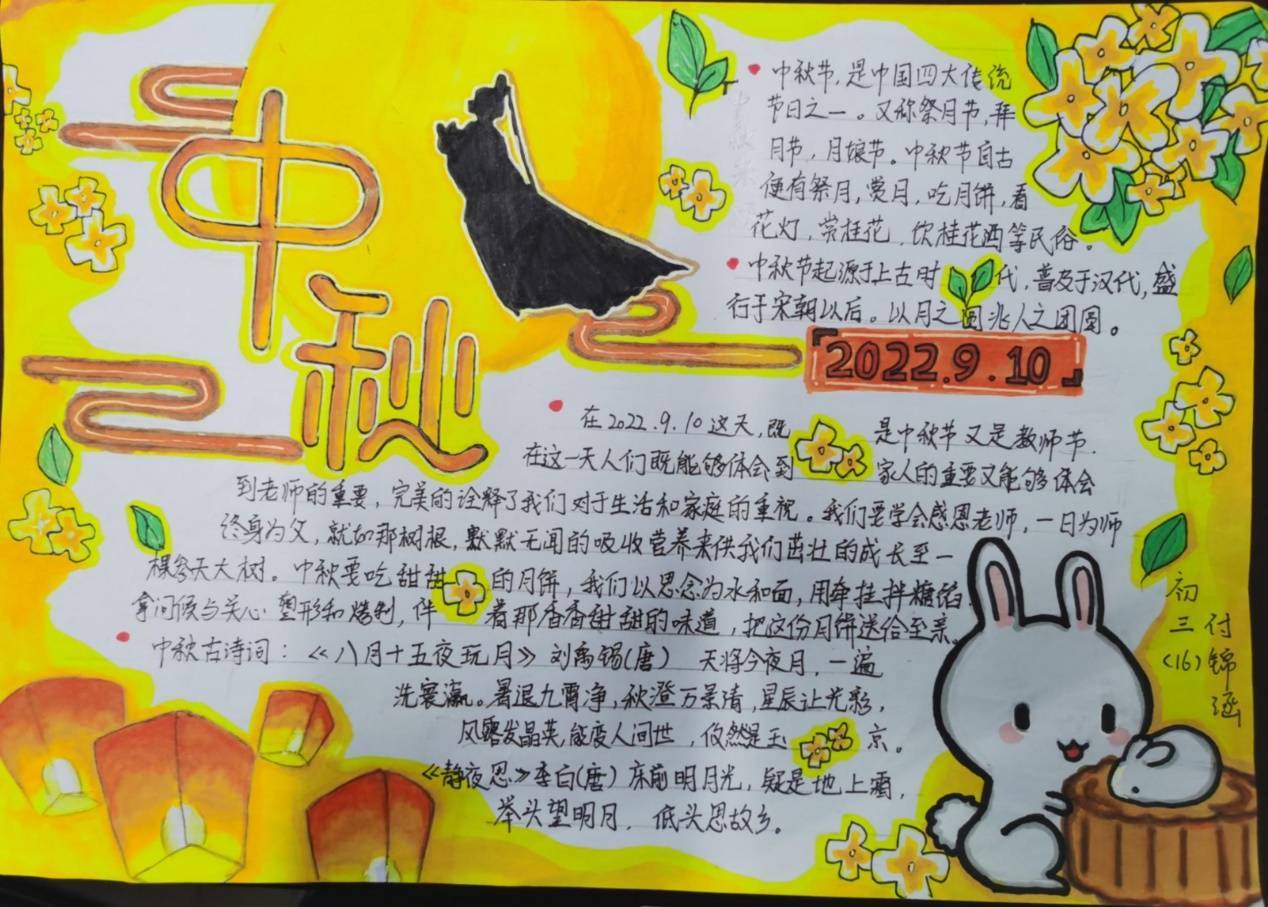 中秋
中秋节，是中国四大传统
节日之一。又称祭月节，拜
月节，月娘节。中秋节自古
便有祭月，赏月，吃月饼，看
花灯，赏桂花，饮桂花酒等民俗。
中秋节起源于上古时代，普及于汉代，盛
行于宋朝以后。以月之圆兆人之团圆。
2022.9.10
在2022.9.10这天，既是中秋节又是教师节.
在这一天人们既能够体会到家人的重要又能够体会
到老师的重要，完美的诠释了我们对于生活和家庭的重视。我们要学会感恩老师，一日为师
终身为父，就如那树根，默默无闻的吸收营养来供我们茁壮的成长至一
棵参天大树。中秋要吃甜甜的月饼，我们以思念为水和面，用牵挂拌糖馅.
拿问候与关心塑形和烤制，伴着那香香甜甜的味道，把这份月饼送给至亲。
中秋古诗词：《八月十五夜玩月》刘禹锡(唐) 天将今夜月，一遍
洗寰瀛。暑退九霄净，秋澄万景清，星辰让光彩，
风露发晶英，能变人间世，攸然是玉京。
《静夜思》李白(唐) 床前明月光，疑是地上霜，
举头望明月，低头思故乡。
初三(16)
付锦涵